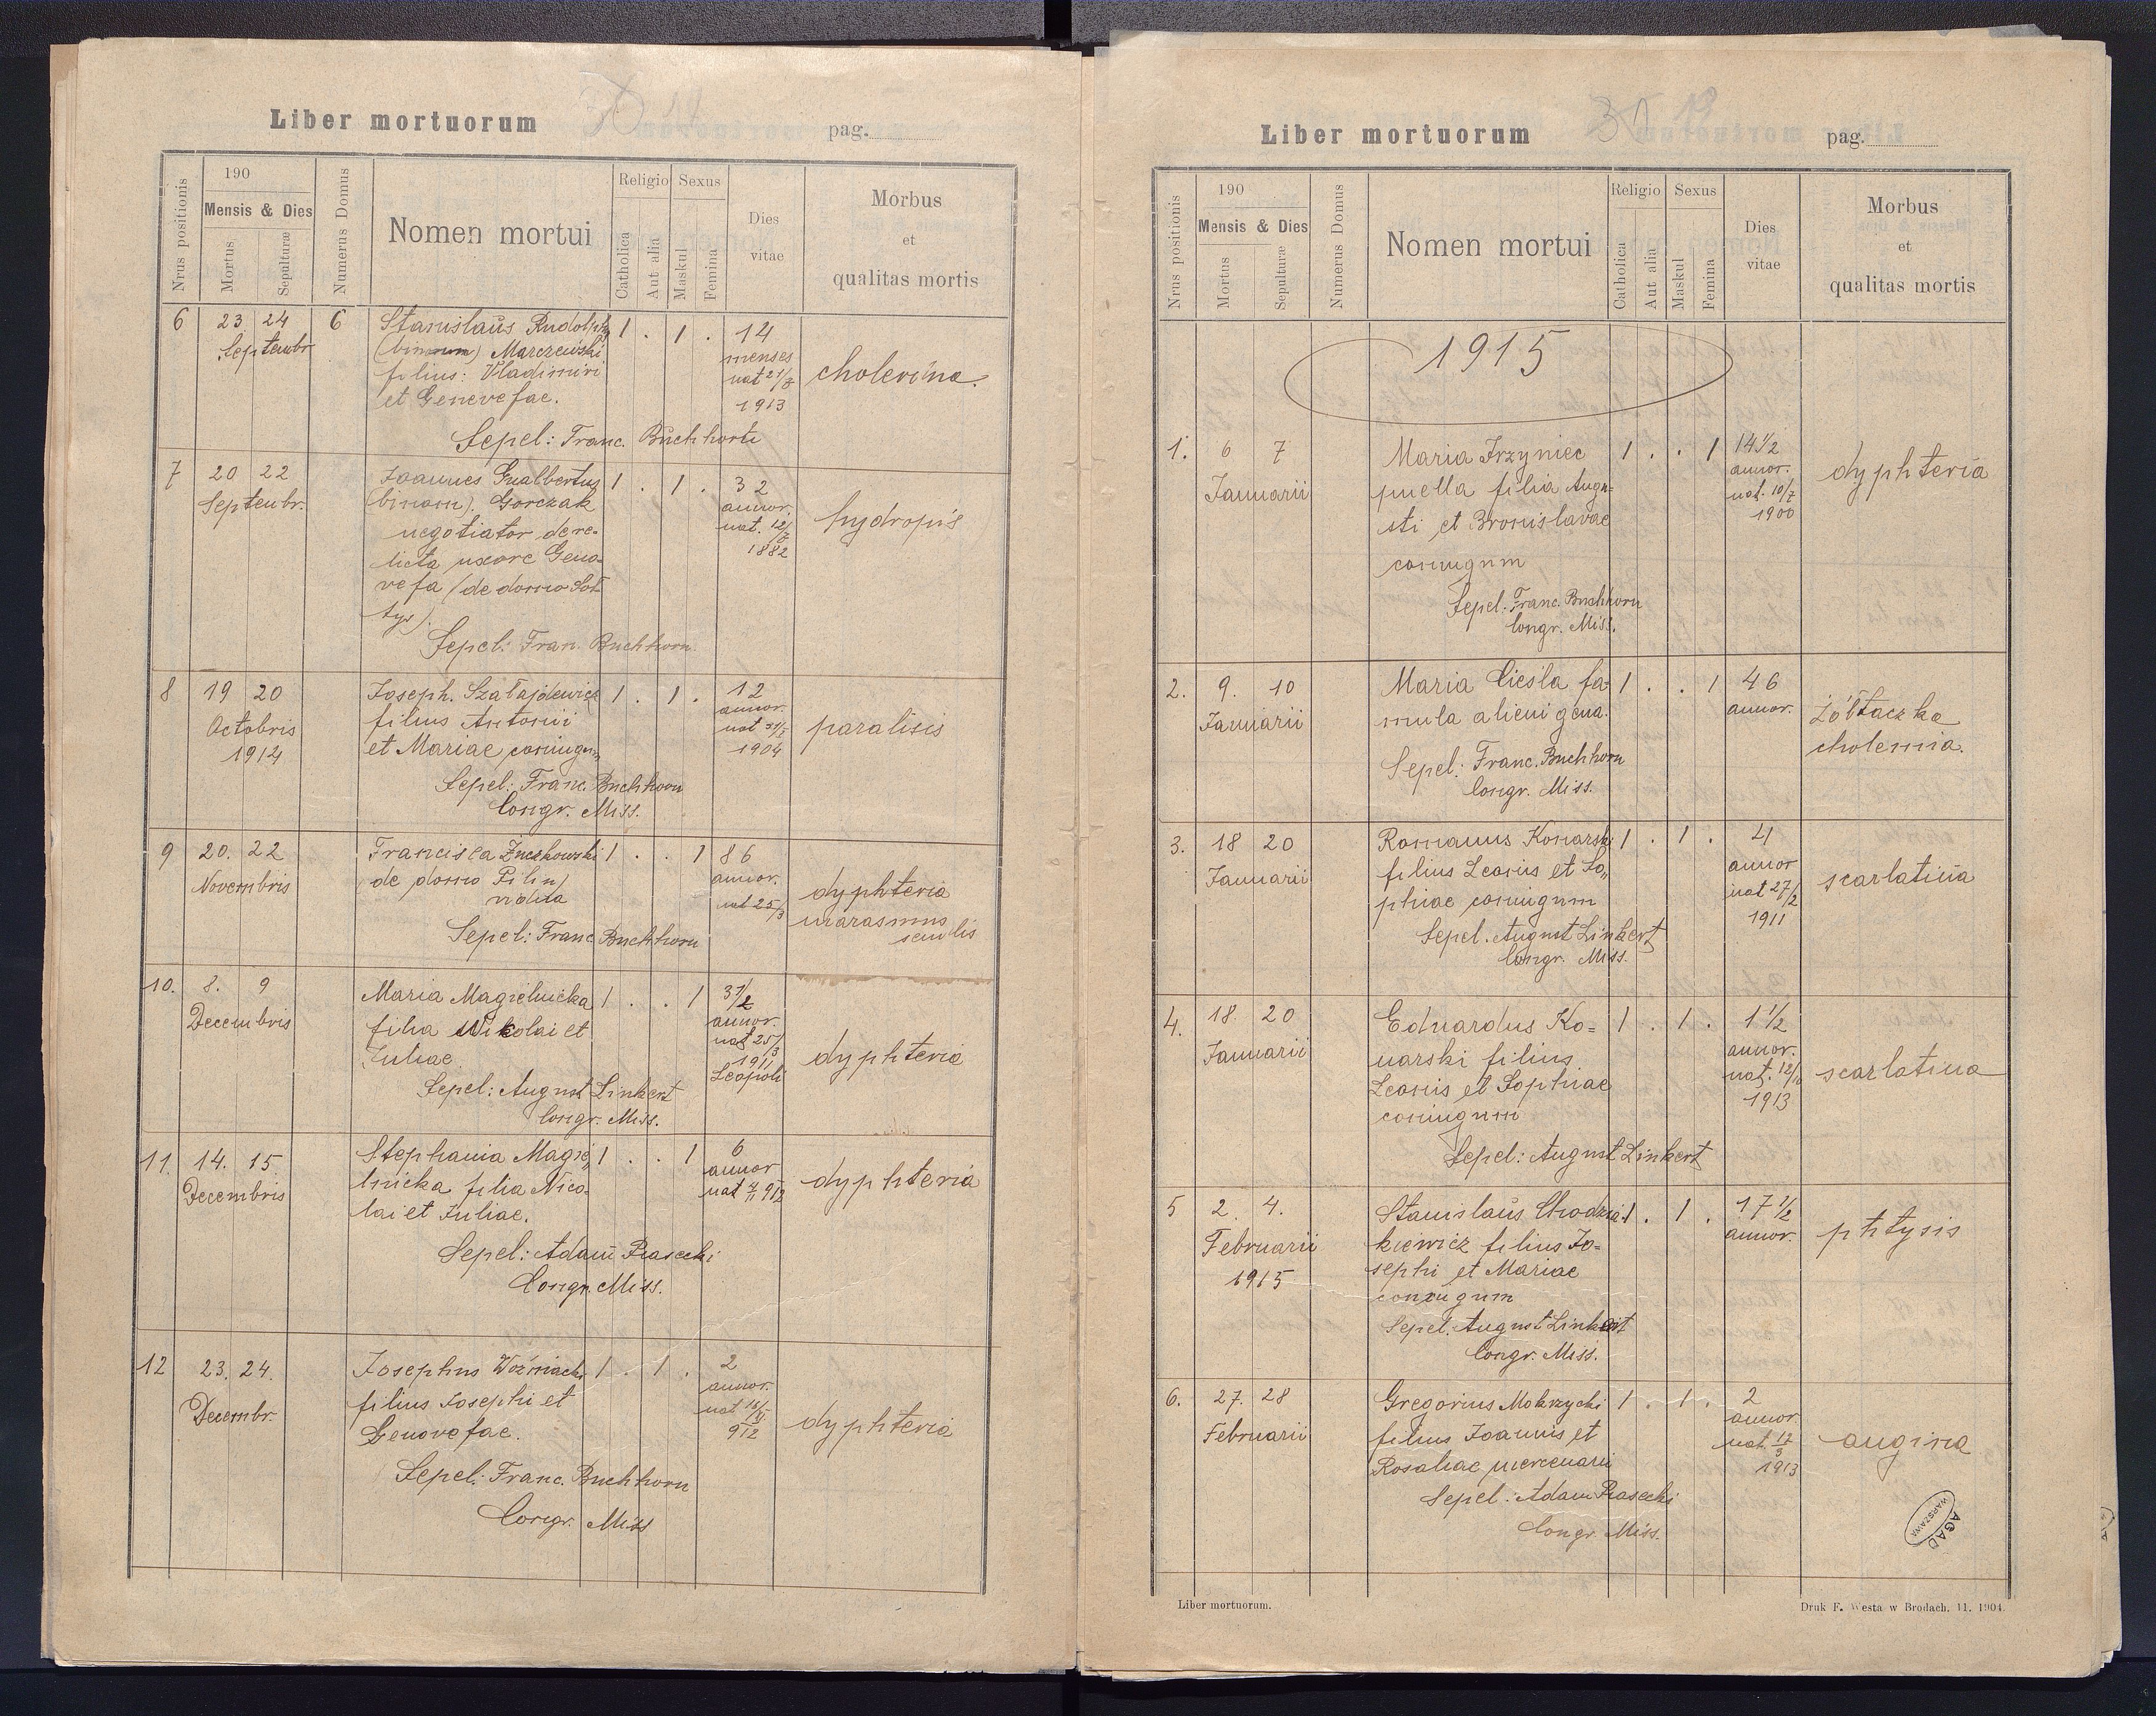 Liber mortuorum
pag.
Nrus positionis
190
Mensis & Dies
Mortus
Sepulturæ
Numerus Domus
Nomen mortui
Religio
Catholica
Aut alia
Sexus
Maskul
Femina
Dies
vitae
Morbus
et
qualitas mortis
6 23 24 6 Stanislaus Rudolphus 1 . 1 . 14
Septembr (binom) Marczewski menses
filius: Vladimiri nat 21/7 cholerina.
et Genevefae. 1913
Sepel: Franc. Buchhorn
7 20 22 Joannes Gualbertus 1 . 1 . 32
Septembr. (binom). Gorczak annor.
negotiator dere- nat. 12/7 hydropis
licta uxore Geno- 1882
vefa (de domo Soł
tys).
Sepel: Fran. Buchhorn.
8 19 20 Joseph. Szałajdewicz 1 . 1 . 12
Octobris filius Antonii annor. paralisis
1914 et Mariae coniugum 1904
Sepel: Franc. Buchhorn
Congr. Miss.
9 20. 22 Francisca 1 . . 1 86
Novembris de domo Pilin annor. dyphteria
vidua nat 25/3 marasmus
senilis
Sepel: Franc Buchhorn
10. 8. 9 Maria Magielnicka 1 . . 1 3 1/2
Decembris filia Nikolai et annor.
Juliae. nat 25/3 dyphteria
1911
Leopoli
Sepel: August Linkert
Congr. Miss.
11. 14. 15. Stephania Magie„ 1 . . 1 6
Decembris lnicka filia Nico- annor dyphteria
lai et Juliae. nat
Sepel: Adam Piasecki
Congr. Miss.
12 23. 24. Josephus Woźniacki 1 . 1 . 2
Decembr. filius Josephi et annor.
Genovefae. nat 912 dyphteria
Sepel: Franc. Buchhorn
Congr. Miss
Liber mortuorum
pag.
Nrus positionis
190
Mensis & Dies
Mortus
Sepulturæ
Numerus Domus
Nomen mortui
Religio
Catholica
Aut alia
Sexus
Maskul
Femina
Dies
vitae
Morbus
et
qualitas mortis
1915
1. 6 7 Maria Trzyniec 1 . . 1 14 1/2
Januarii puella filia Augu= annor. dyphteria
sti et Bronislavae nat. 10/7
coniugum 1900
Sepel: Franc. Buchhorn
Congr. Miss.
2. 9. 10 Maria Cieśla fa- 1 . . 1 46
Januarii mula alienigena. annor. żółtaczka
cholemia.
Sepel: Franc. Buchhorn
Congr. Miss.
3. 18 20 Romanus Konarski 1 . 1 . 4
Januarii filius Leonis et So„ annor scarlatina
phiae coniugum nat 27/2
1911
Sepel. August Linkert
Congr. Miss.
4. 18. 20 Eduardus Ko= 1 . 1 . 1 1/2
Januarii narski filius annor.
Leonis et Sophiae nat. 12/10 scarlatina
coniugum 1913
Sepel: August Linkert
5 2. 4. Stanislaus Chodzia- 1 . 1 . 17 1/2
Februarii kiewicz filius Jo= annor. phtysis
1915 sephi et Mariae
coniugum
Sepel. August Linkert
Congr. Miss.
6. 27. 28 Gregorius Mokrzycki 1 . 1 . 2
Februarii filius Joannis et annor.
Rosaliae mercenarii nat. 17/3 angina
1913
Sepel: Adam Piasecki
Congr. Miss.
AGAD
WARSZAWA
Liber mortuorum.
Druk F. Westa w Brodach. 11. 1904.